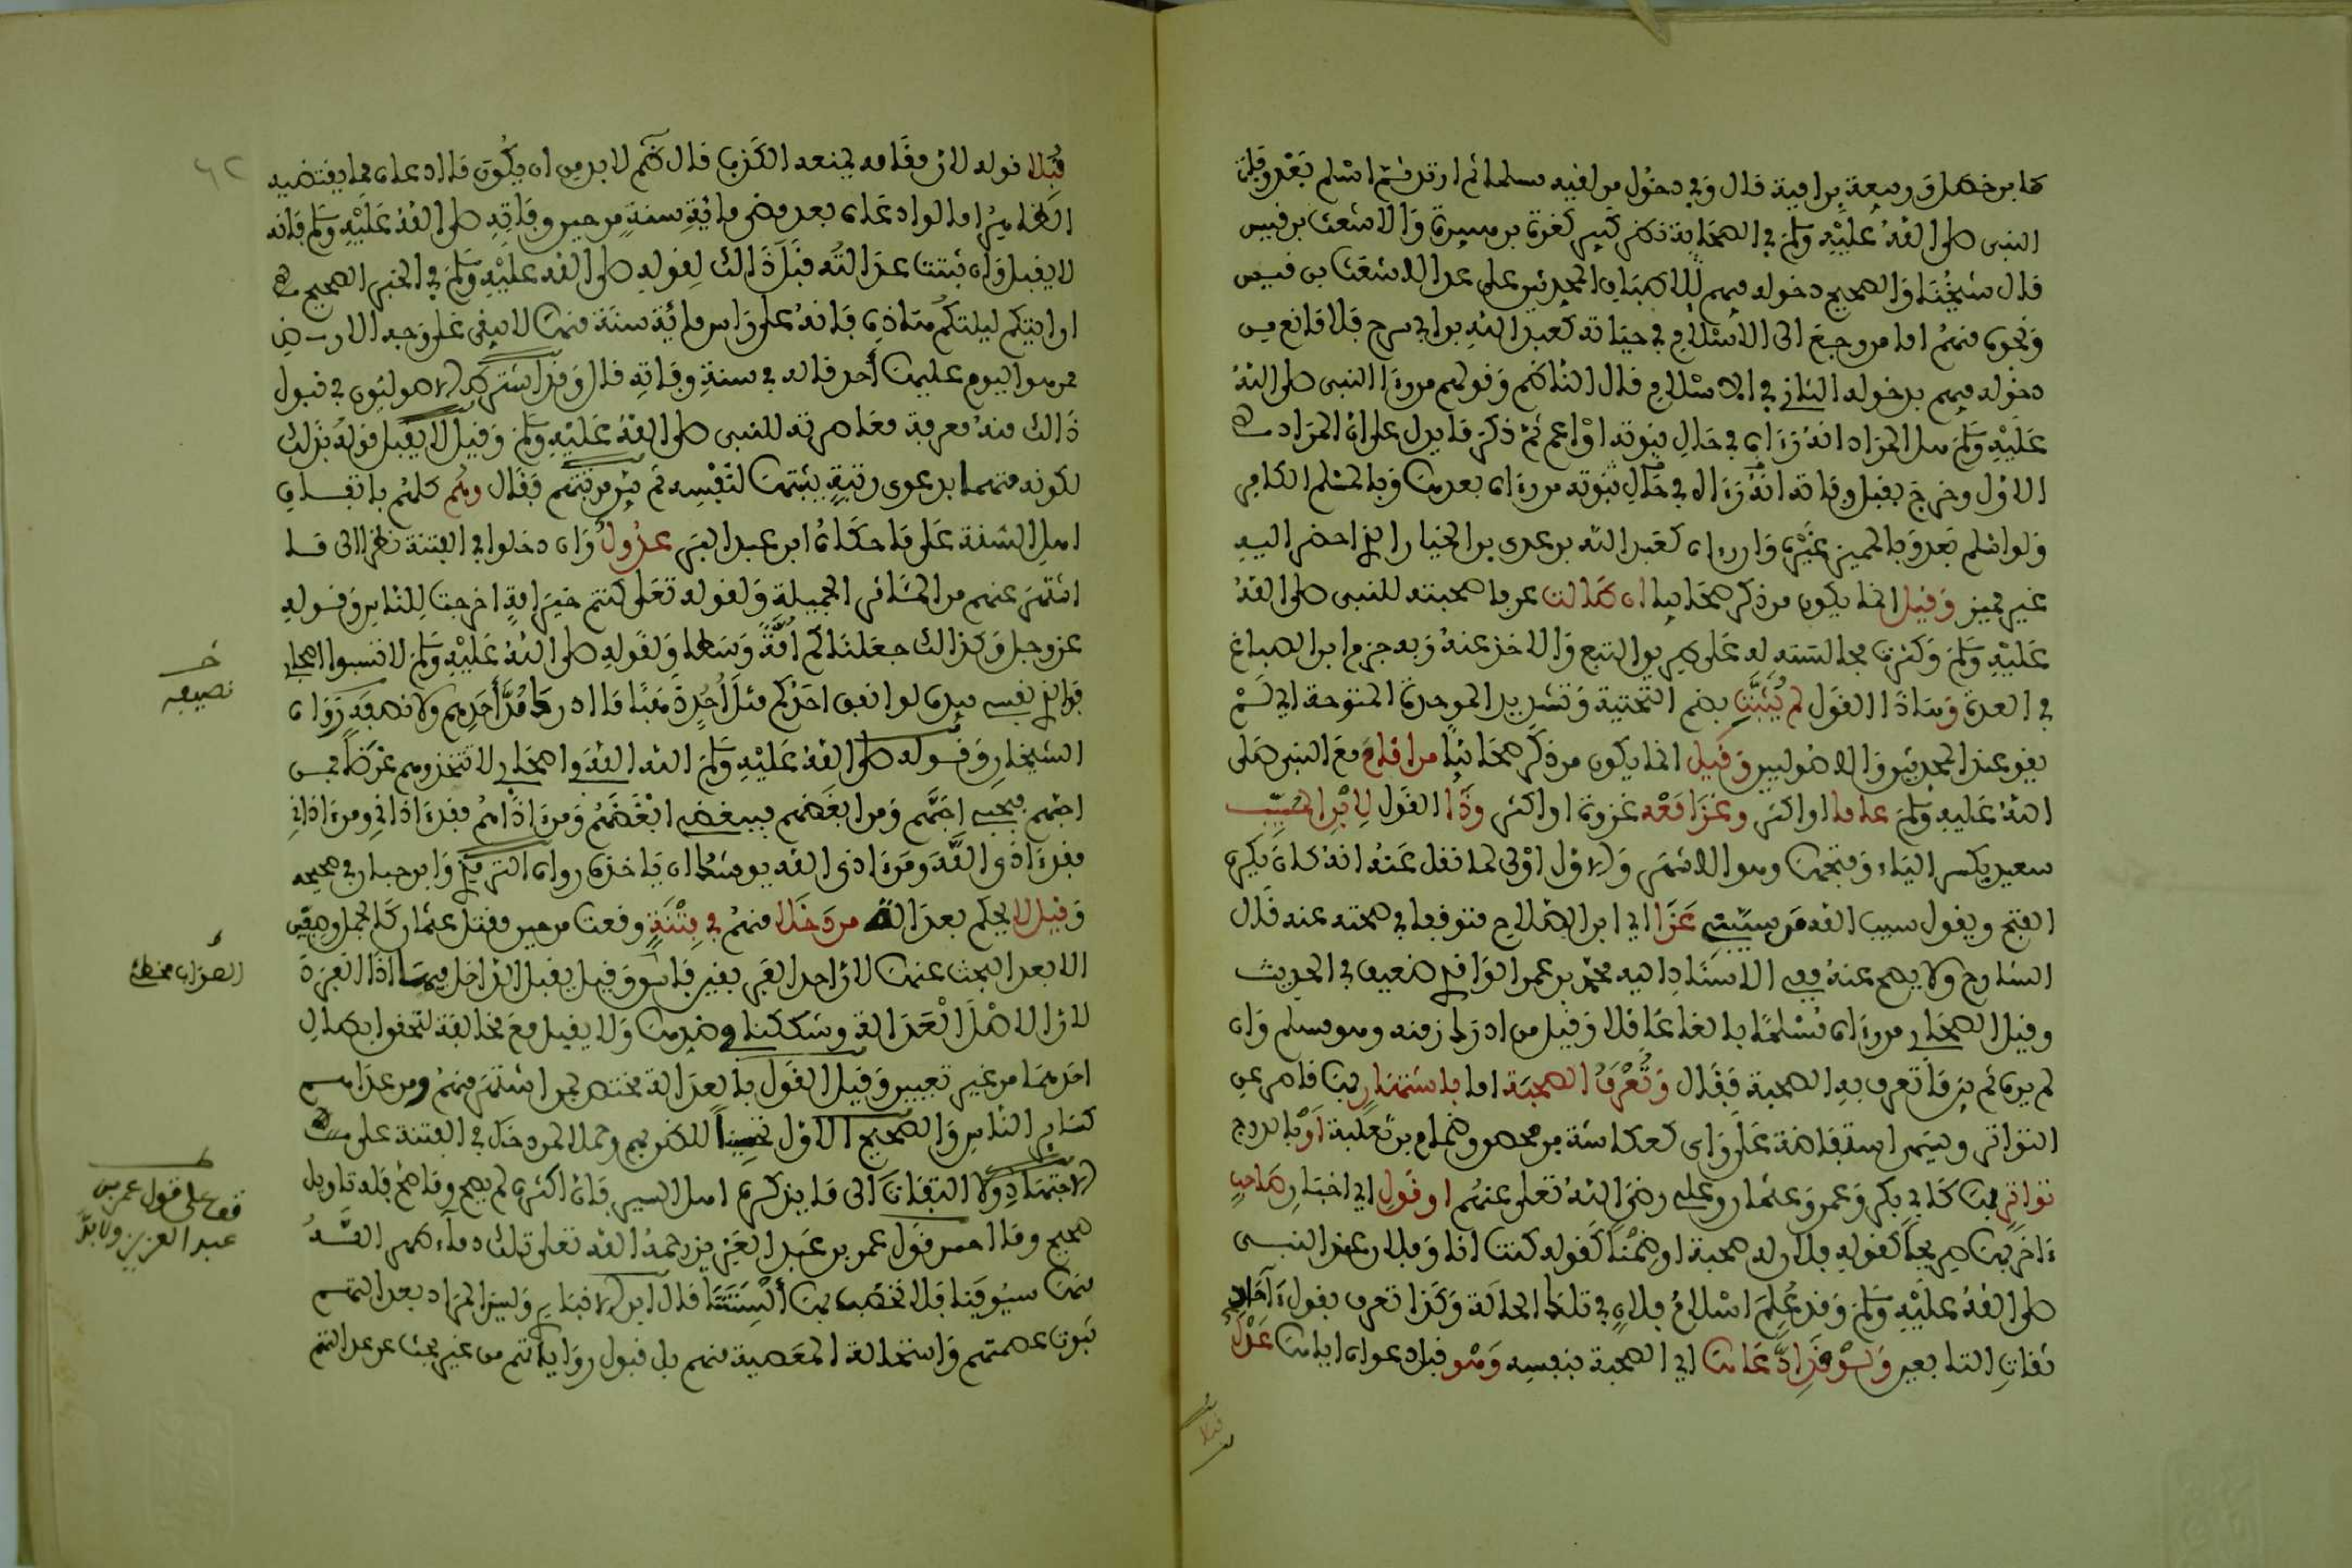 كابن خطل وربيعة بن أمية قال وفي دخول من لقيه مسلما ثم ارتد ثم اسلم بعد وفاة
النبي صلى الله عليه وسلم في الصحابة نظر كبير كقرة بن ميسرة والاشعث بن قيس
قال شيخنا والصحيح دخوله فيهم لاطباق المحدثين على عد الاشعث بن قيس
ونحوه منهم اما من رجع الى الاسلام في حياته كعبد الله بن ابي سرح فلا مانع من
دخوله فيهم بدخوله الثاني في الاسلام قال الناظم وقولهم من رءا النبي صلى الله
عليه وسلم هل المراد انه رءاه في حال نبوته او اعم ثم ذكر ما يدل على ان المراد
الاول وخرج بقبل وفاته انه رءاه في حال نبوته من رءاه بعدها وبالمسلم الكافر
ولو اسلم بعد وبالمميز غيره وان رءاه كعبد الله بن عدي بن الخيار الذي احضر اليه
غير مميز وقيل انما يكون من ذكر صحابيا ان طالت عرفا صحبته للنبي صلى الله
عليه وسلم وكثرت مجالسته له على طريق التبع والاخذ عنه وبه جزم ابن الصباغ
في العدة وهاذا القول لم يثبت بضم التحتية وتشديد الموحدة المفتوحة اي لم
يقو عند المحدثين والاصوليين وقيل انما يكون من ذكر صحابيا من اقام مع النبي صلى
الله عليه وسلم عاما او اكثر وغزا معه غزوة او اكثر وذا القول لابن المسيب
سعيد بكسر الياء وفتحها وهو الاشهر والاول اولى لما نقل عنه انه كان يكره
الفتح ويقول سيب الله من سيبني عزا اي ابن الصلاح متوقفا في صحته عنه قال
الشارح ولا يصح عنه ففي الاسناد اليه محمد بن عمر الواقدي ضعيف في الحديث
وقيل الصحابي من رءاه مسلما بالغا عاقلا وقيل من ادرك زمنه وهو مسلم وان
لم يره ثم بين ما تعرف به الصحبة فقال وتعرف الصحبة اما باشتهار بها قاصر عن
التواتر ويسمى استفاضة على راي كعكاشة بن محصن وضمام بن ثعلبة او بالدرج
تواتر بها كابي بكر وعمر وعثمان وعلي رضي الله تعلى عنهم او قول اي اخبار صاحب
ءاخر بها صريحا كقوله فلان له صحبة او ضمنا كقوله كنت انا وفلان عند النبي
صلى الله عليه وسلم وقد علم اسلام فلان في تلك الحالة وكذا تعرف بقول ءاحاد
ثقات التابعين ولو قد ادعاها اي الصحبة بنفسه وهو قبل دعواه اياها عدل
قبلا
قبلا قوله لان مقامه يمنعه الكذب قال ثم لا بد من ان يكون ما ادعاه مما يقتضيه
الظاهر اما لو ادعاه بعد مضي مائة سنة من حين وفاته صلى الله عليه وسلم فانه
لا يقبل وان ثبتت عدالته قبل ذالك لقوله صلى الله عليه وسلم في الخبر الصحيح
ارايتكم ليلتكم هاذه فانه على راس مائة سنة منها لا يبقى على وجه الارض
ممن هو اليوم عليها أحد قاله في سنة وفاته قال وقد اشترط الاصوليون في قبول
ذالك منه معرفة معاصرته للنبي صلى الله عليه وسلم وقيل لا يقبل قوله بذلك
لكونه متهما بدعوى رتبة يثبتها لنفسه ثم بين مرتبتهم فقال وهم كلهم باتفاق
اهل السنة على ما حكاه ابن عبد البر عدول وان دخلوا في الفتنة نظرا الى ما
اشتهر عنهم من المئاثر الجميلة ولقوله تعلى كنتم خير امة اخرجت للناس وقوله
عز وجل وكذالك جعلناكم امة وسطا ولقوله صلى الله عليه وسلم لا تسبوا اصحابي
فوالذي نفسي بيده لو انفق احدكم مثل أحد ذهبا ما ادرك مد أحدهم ولا نصيفه رواه
الشيخان وقوله صلى الله عليه وسلم الله الله في اصحابي لا تتخذوهم غرضا فمن
احبهم فبحبي احبهم ومن ابغضهم فببغضي ابغضهم ومن ءاذاهم فقد ءاذاني ومن ءاذاني
فقد ءاذى الله ومن ءاذى الله يوشك ان ياخذه رواه الترمذي وابن حبان في صحيحه
وقيل لا يحكم بعدالة من دخلا منهم في فتنة وقعت من حين مقتل عثمان كالجمل وصفين
الا بعد البحث عنها لان احد الفريقين فاسق وقيل يقبل الداخل فيها اذا انفرد
لان الاصل العدالة وشككنا في ضدها ولا يقبل مع مخالفة لتحقق ابطال
احدهما من غير تعيين وقيل القول بالعدالة مختص بمن اشتهر منهم ومن عداهم
كسائر الناس والصحيح الاول تحسينا للظن بهم وحملا لمن دخل في الفتنة على
الاجتهاد ولا التفات الى ما يذكره اهل السير فان اكثره لم يصح وما صح فله تاويل
صحيح وما احسن قول عمر بن عبد العزيز رحمه الله تعلى تلك دماء طهر الله
منها سيوفنا فلا نخضب بها ألسنتنا قال ابن الانباري وليس المراد بعدالتهم
ثبوت عصمتهم واستحالة المعصية منهم بل قبول رواياتهم من غير بحث عن عدالتهم
خ
نصيفه
الصواب مخطئ
قف على قول عمر بن
عبد العزيز ولا بد